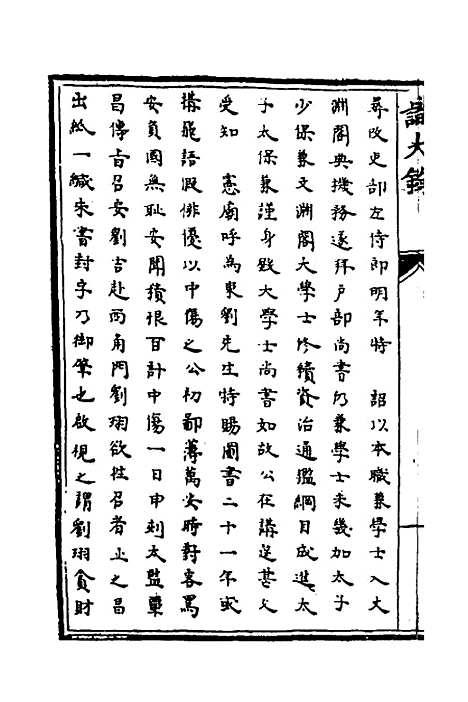 尋改吏部左侍郎明年特　詔以本職兼學士入大
淵閣典機務遂拜户部尚書仍兼學士未幾加太子
少保兼文淵閣大學士修續資治通鑑綱目成進太
子太保兼謹身殿大學士尚書如故公在講筵甚久
受知　憲廟呼為東劉先生特賜圖書二十一年或
搆飛語假俳優以中傷之公初鄙薄萬安時對客罵
安負國無耻安聞積恨百計中傷一日申刻太監覃
昌傳旨召安劉吉赴西角門劉珝欲往召者止之昌
出紙一緘朱書封字乃御筆也啟視之謂劉珝貪財